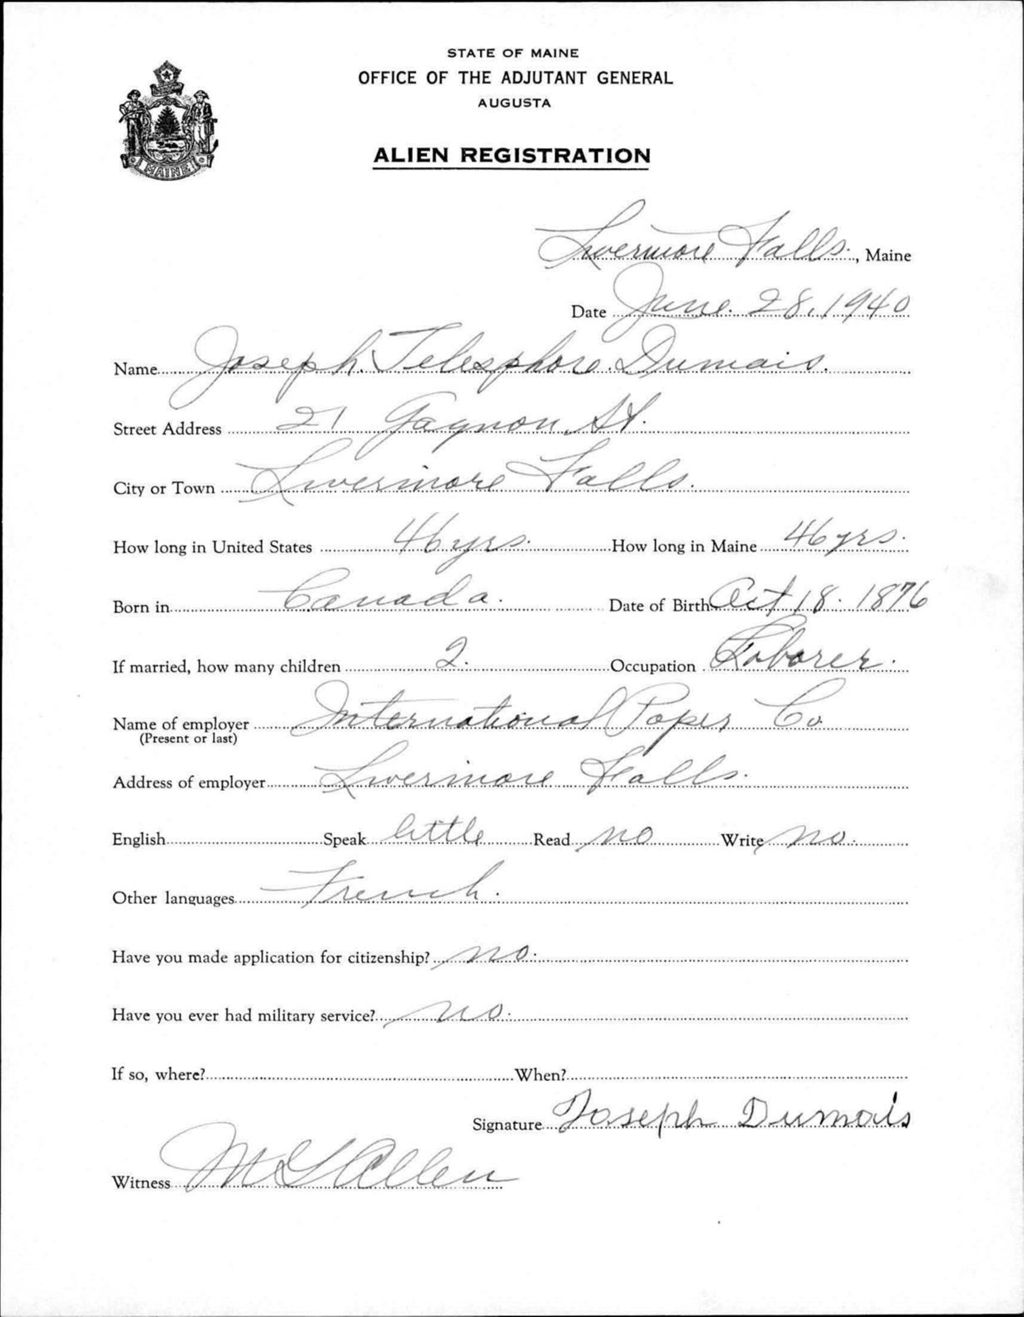 STATE OF MAINE
OFFICE OF THE ADJUTANT GENERAL
AUGUSTA
ALIEN REGISTRATION
MAINE
Livermore Falls., Maine
Date June. 28, 1940
Name Joseph. Telesphore. Dumais.
Street Address 21 Gagnon St.
City or Town Livermore Falls.
How long in United States 46 yrs. How long in Maine 46 yrs.
Born in Canada. Date of Birth Oct 18. 1876
If married, how many children 2. Occupation Laborer.
Name of employer International Paper Co
(Present or last)
Address of employer Livermore Falls.
English Speak little Read no Write no.
Other languages French.
Have you made application for citizenship? no.
Have you ever had military service? no.
If so, where? When?
Signature Joseph Dumais
Witness M L Allen